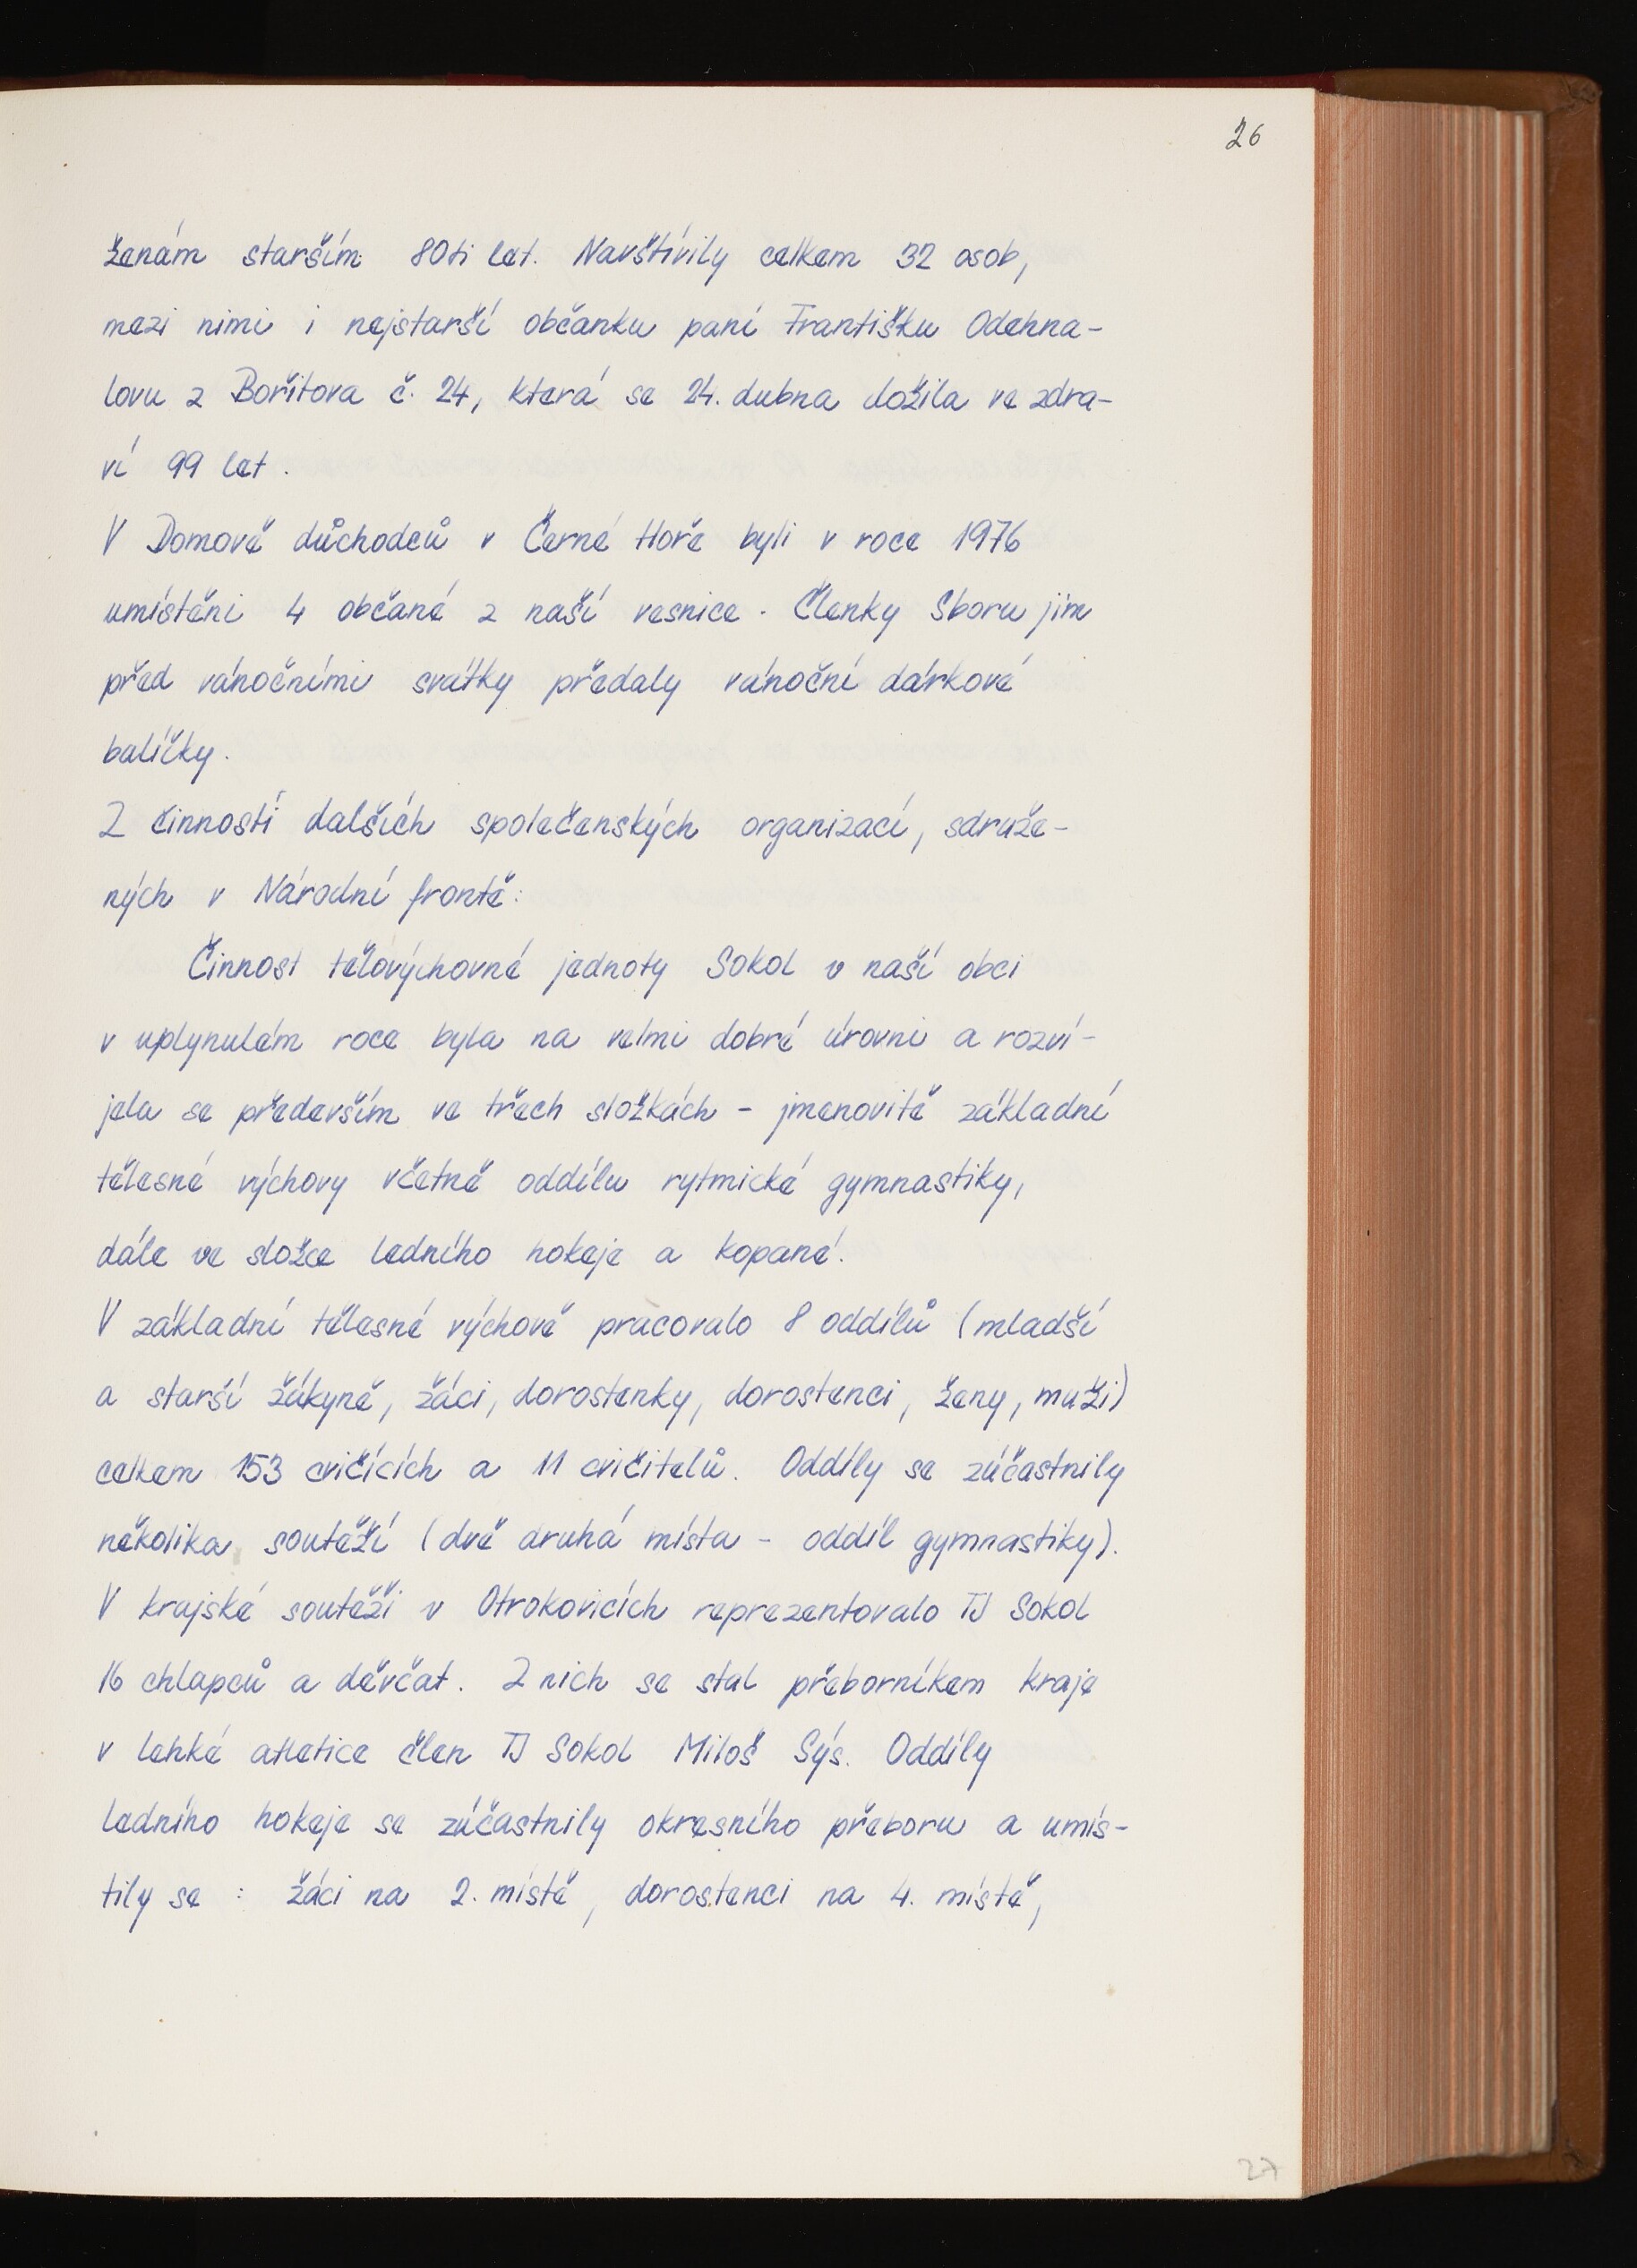 26
ženám starším 80ti let. Navštívily celkem 32 osob,
mezi nimi i nejstarší občanku paní Františku Odehna-
lovu z Bořitova č. 24, která se 24. dubna dožila ve zdra-
ví 99 let.
V Domově důchodců v Černé Hoře byli v roce 1976
umístěni 4 občané z naší vesnice. Členky Sboru jim
před vánočními svátky předaly vánoční dárkové
balíčky.
Z činností dalších společenských organizací, sdruže-
ných v Národní frontě:
Činnost tělovýchovné jednoty Sokol v naší obci
v uplynulém roce byla na velmi dobré úrovni a rozví-
jela se především ve třech složkách - jmenovitě základní
tělesné výchovy včetně oddílu rytmické gymnastiky,
dále ve složce ledního hokeje a kopané.
V základní tělesné výchově pracovalo 8 oddílů (mladší
a starší žákyně, žáci, dorostenky, dorostenci, ženy, muži)
celkem 153 cvičících a 11 cvičitelů. Oddíly se zúčastnily
několika soutěží (dvě druhá místa - oddíl gymnastiky).
V krajské soutěži v Otrokovicích reprezentovalo TJ Sokol
16 chlapců a děvčat. Z nich se stal přeborníkem kraje
v lehké atletice člen TJ Sokol Miloš Sýs. Oddíly
ledního hokeje se zúčastnily okresního přeboru a umís-
tily se : žáci na 2. místě, dorostenci na 4. místě,
27